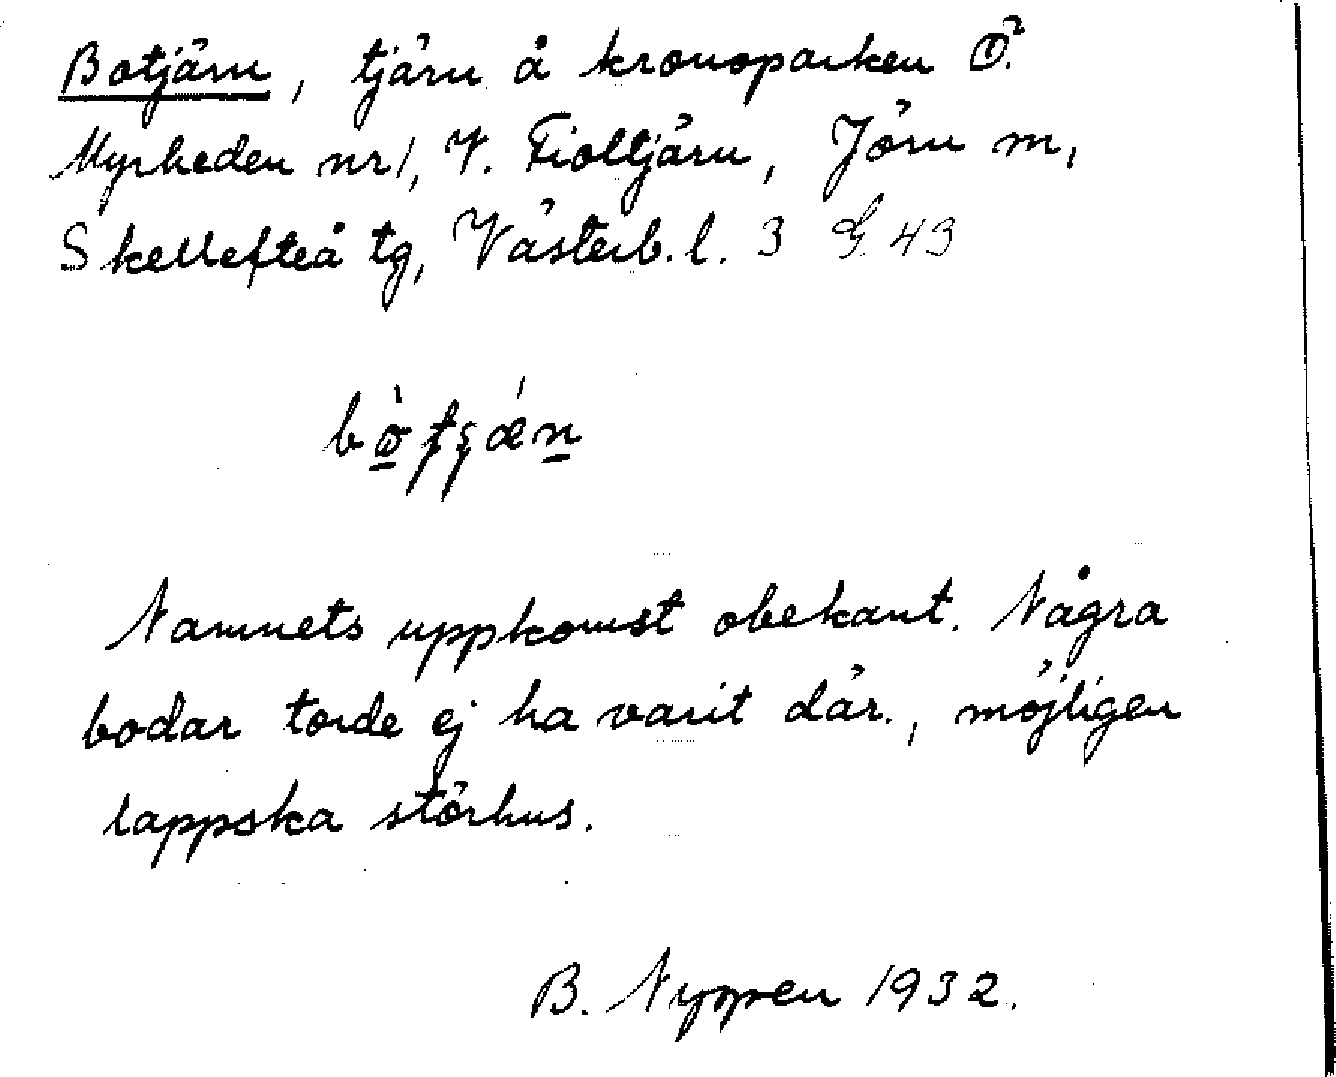 Botjärn, tjärn å kronoparken Ö.
Myrheden nr 1, V. Fioltjärn, Jörn m,
Skellefteå tg, Västerb. l. 3 G. 43
Namnets uppkomst obekant. Några
bodar torde ej ha varit där., möjligen
lappska störhus.
B. Nyppen 1932.